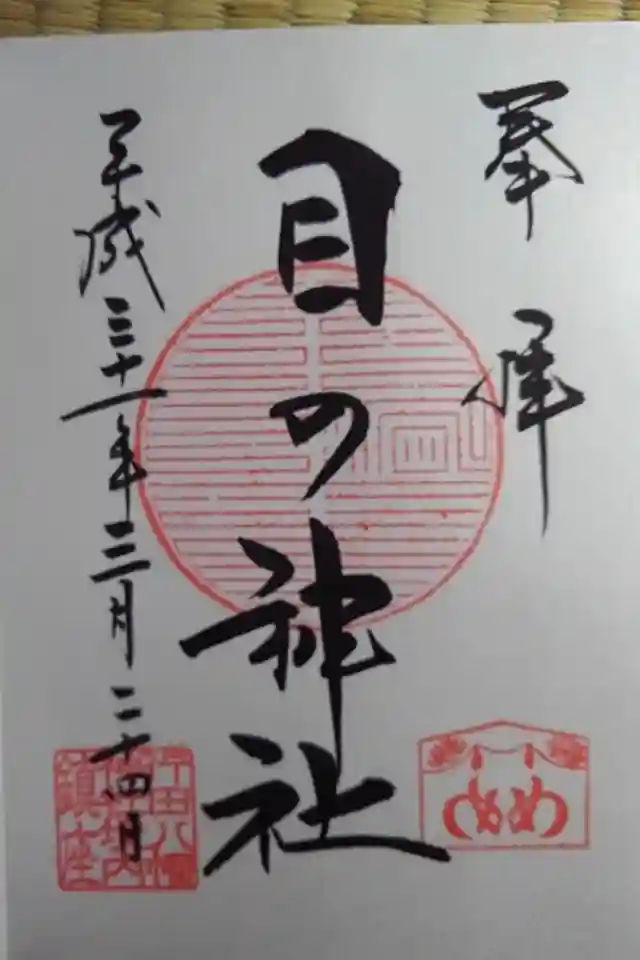 奉拝
目の神社
平成三十一年三月二十四日
めめ